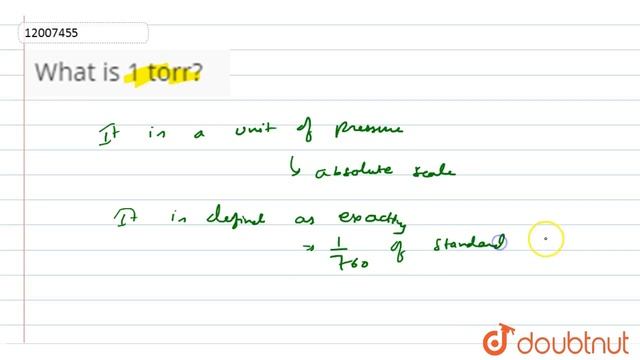 12007455
What is 1 torr?
It is a unit of pressure
↳ absolute scale
It is defined as exactly
→ 1/760 of standard
doubtnut